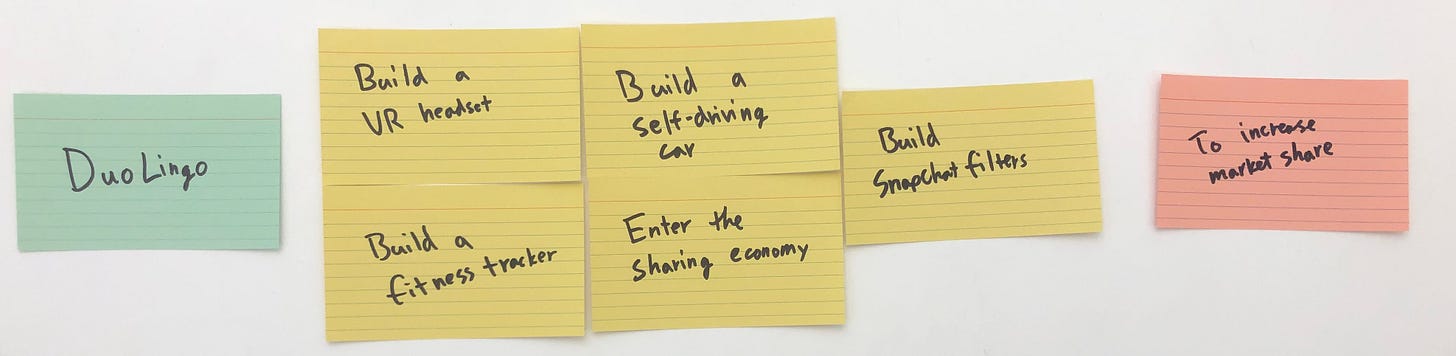 DuoLingo
Build a
VR headset
Build a
self-driving
car
Build a
fitness tracker
Enter the
sharing economy
Build
Snapchat filters
To increase
market share